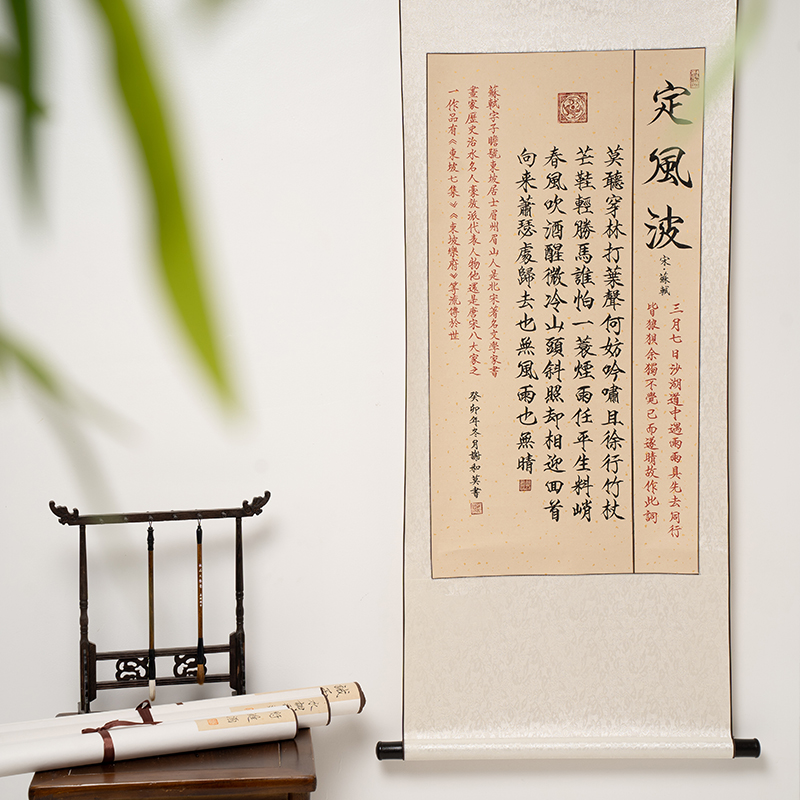 定風波
宋·蘇軾
三月七日沙湖道中遇雨雨具先去同行
皆狼狽余獨不覺已而遂晴故作此詞
莫聽穿林打葉聲何妨吟嘯且徐行竹杖
芒鞋輕勝馬誰怕一蓑煙雨任平生料峭
春風吹酒醒微冷山頭斜照却相迎回首
向来蕭瑟處歸去也無風雨也無晴
蘇軾字子瞻號東坡居士眉州眉山人是北宋著名文學家書
畫家歷史治水名人豪放派代表人物他還是唐宋八大家之
一作品有《東坡七集》《東坡樂府》等流傳於世
癸卯年冬月謝和英書